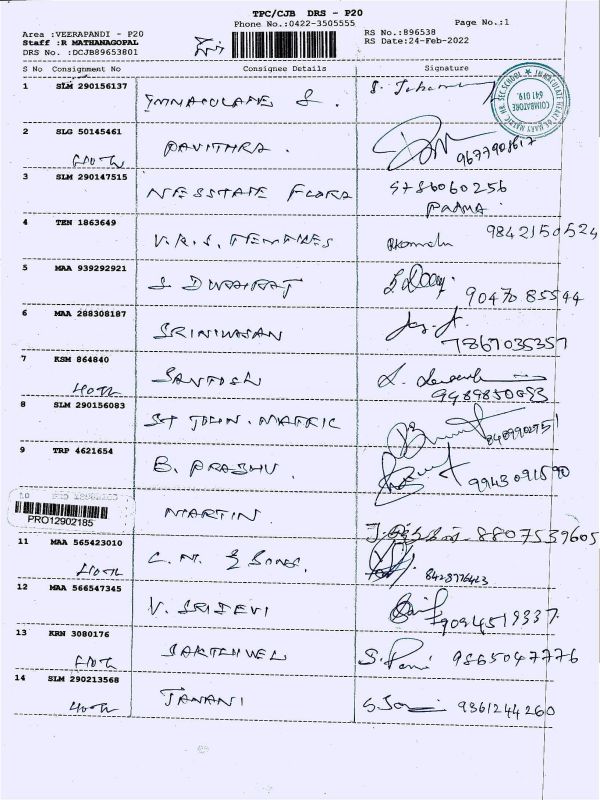 TPC/CJB DRS - P20
Phone No.:0422-3505555
Page No.:1
Area :VEERAPANDI - P20
Staff :R MATHANAGOPAL
DRS No. :DCJB89653801
RS No.:896538
RS Date:24-Feb-2022
S No Consignment No Consignee Details Signature
1 SLM 290156137 IMMACULATE &.
IMMACULATE HEART OF MARY MATRIC HR SEC SCHOOL
COIMBATORE
641 019
2 SLG 50145461 PAVITHRA. 9677908617
3 SLM 290147515 NESSTATE FLORA 9786060256
PADMA
4 TEN 1863649 V.R.S. 9842150524
5 MAA 939292921 S DURAIRAJ 9047085544
6 MAA 288308187 SRINIVASAN 7867035357
7 KSM 864840 SANTOSH
9489850093
8 SLM 290156083 ST JOHN. MATRIC
9 TRP 4621654 B. PRABHU. 9943091590
10
PRO12902185
MARTIN 8807539605
11 MAA 565423010 C. N. & SONS.
12 MAA 566547345 V. SRIDEVI 9094519337
13 KRN 3080176 SAKTHIVEL 9865047776
14 SLM 290213568 JANANI 9361244260